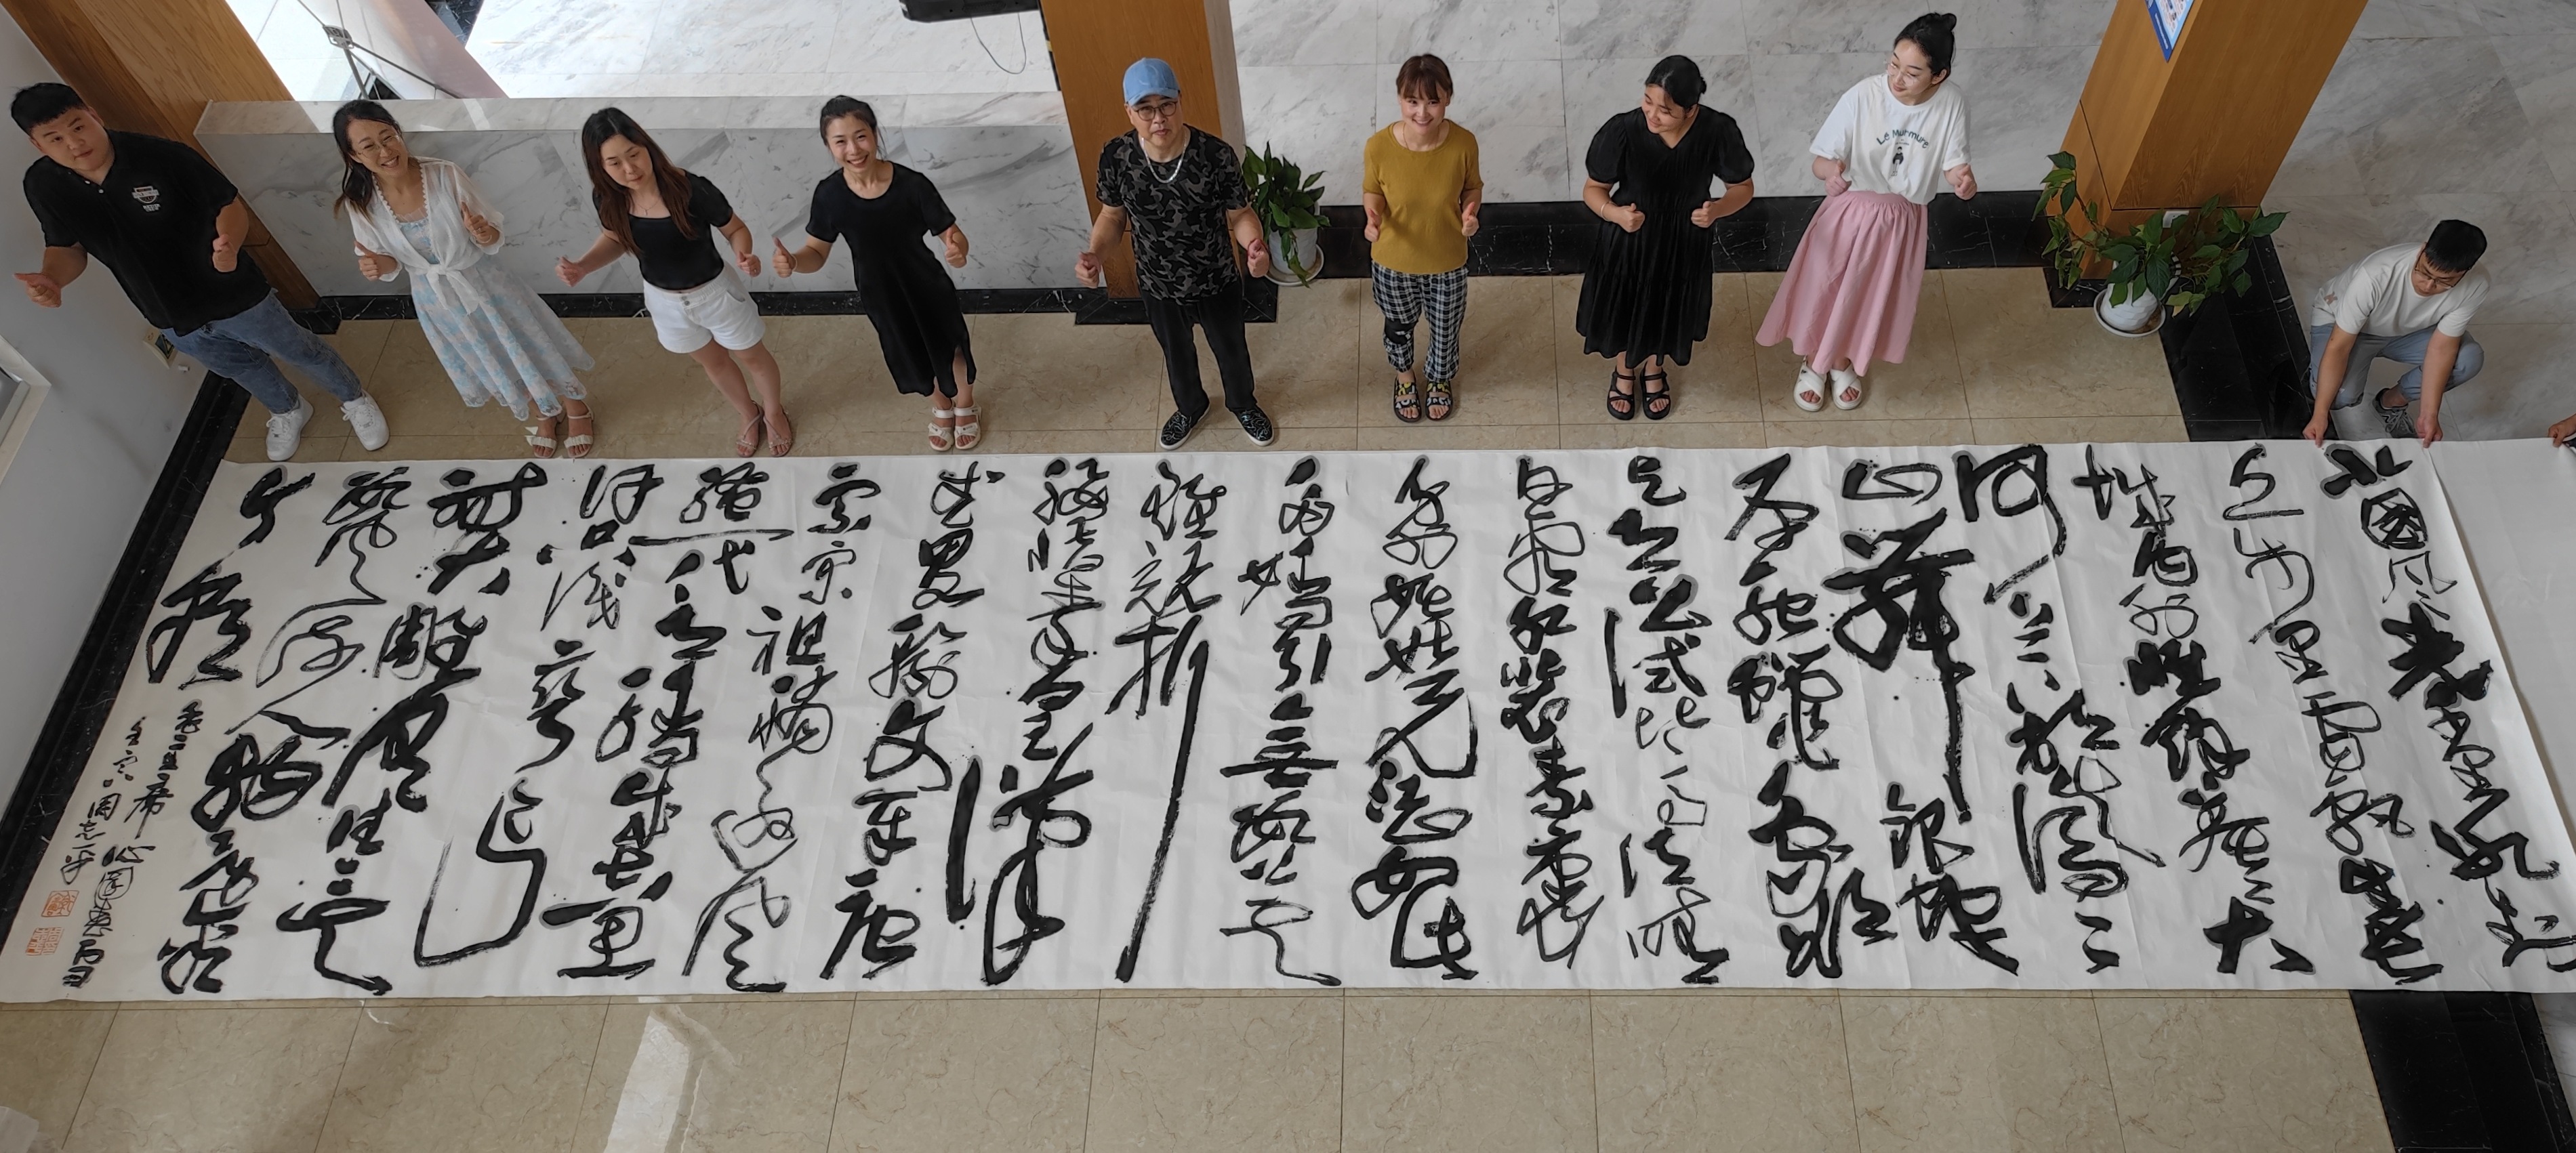 北國风光千里冰封
万里雪飘望长
城内外惟余莽莽大
河上下顿失滔滔
山舞银蛇
原驰蜡象欲
与天公试比高须晴
日看红装素裹
分外妖娆江山如此
多娇引无数英
雄竞折
腰惜秦皇汉
武略输文采唐
宗宋祖稍逊风
骚一代天骄成吉思
汗只识弯弓
射大雕俱往矣
数风流人物还看
今朝
Le Murmure